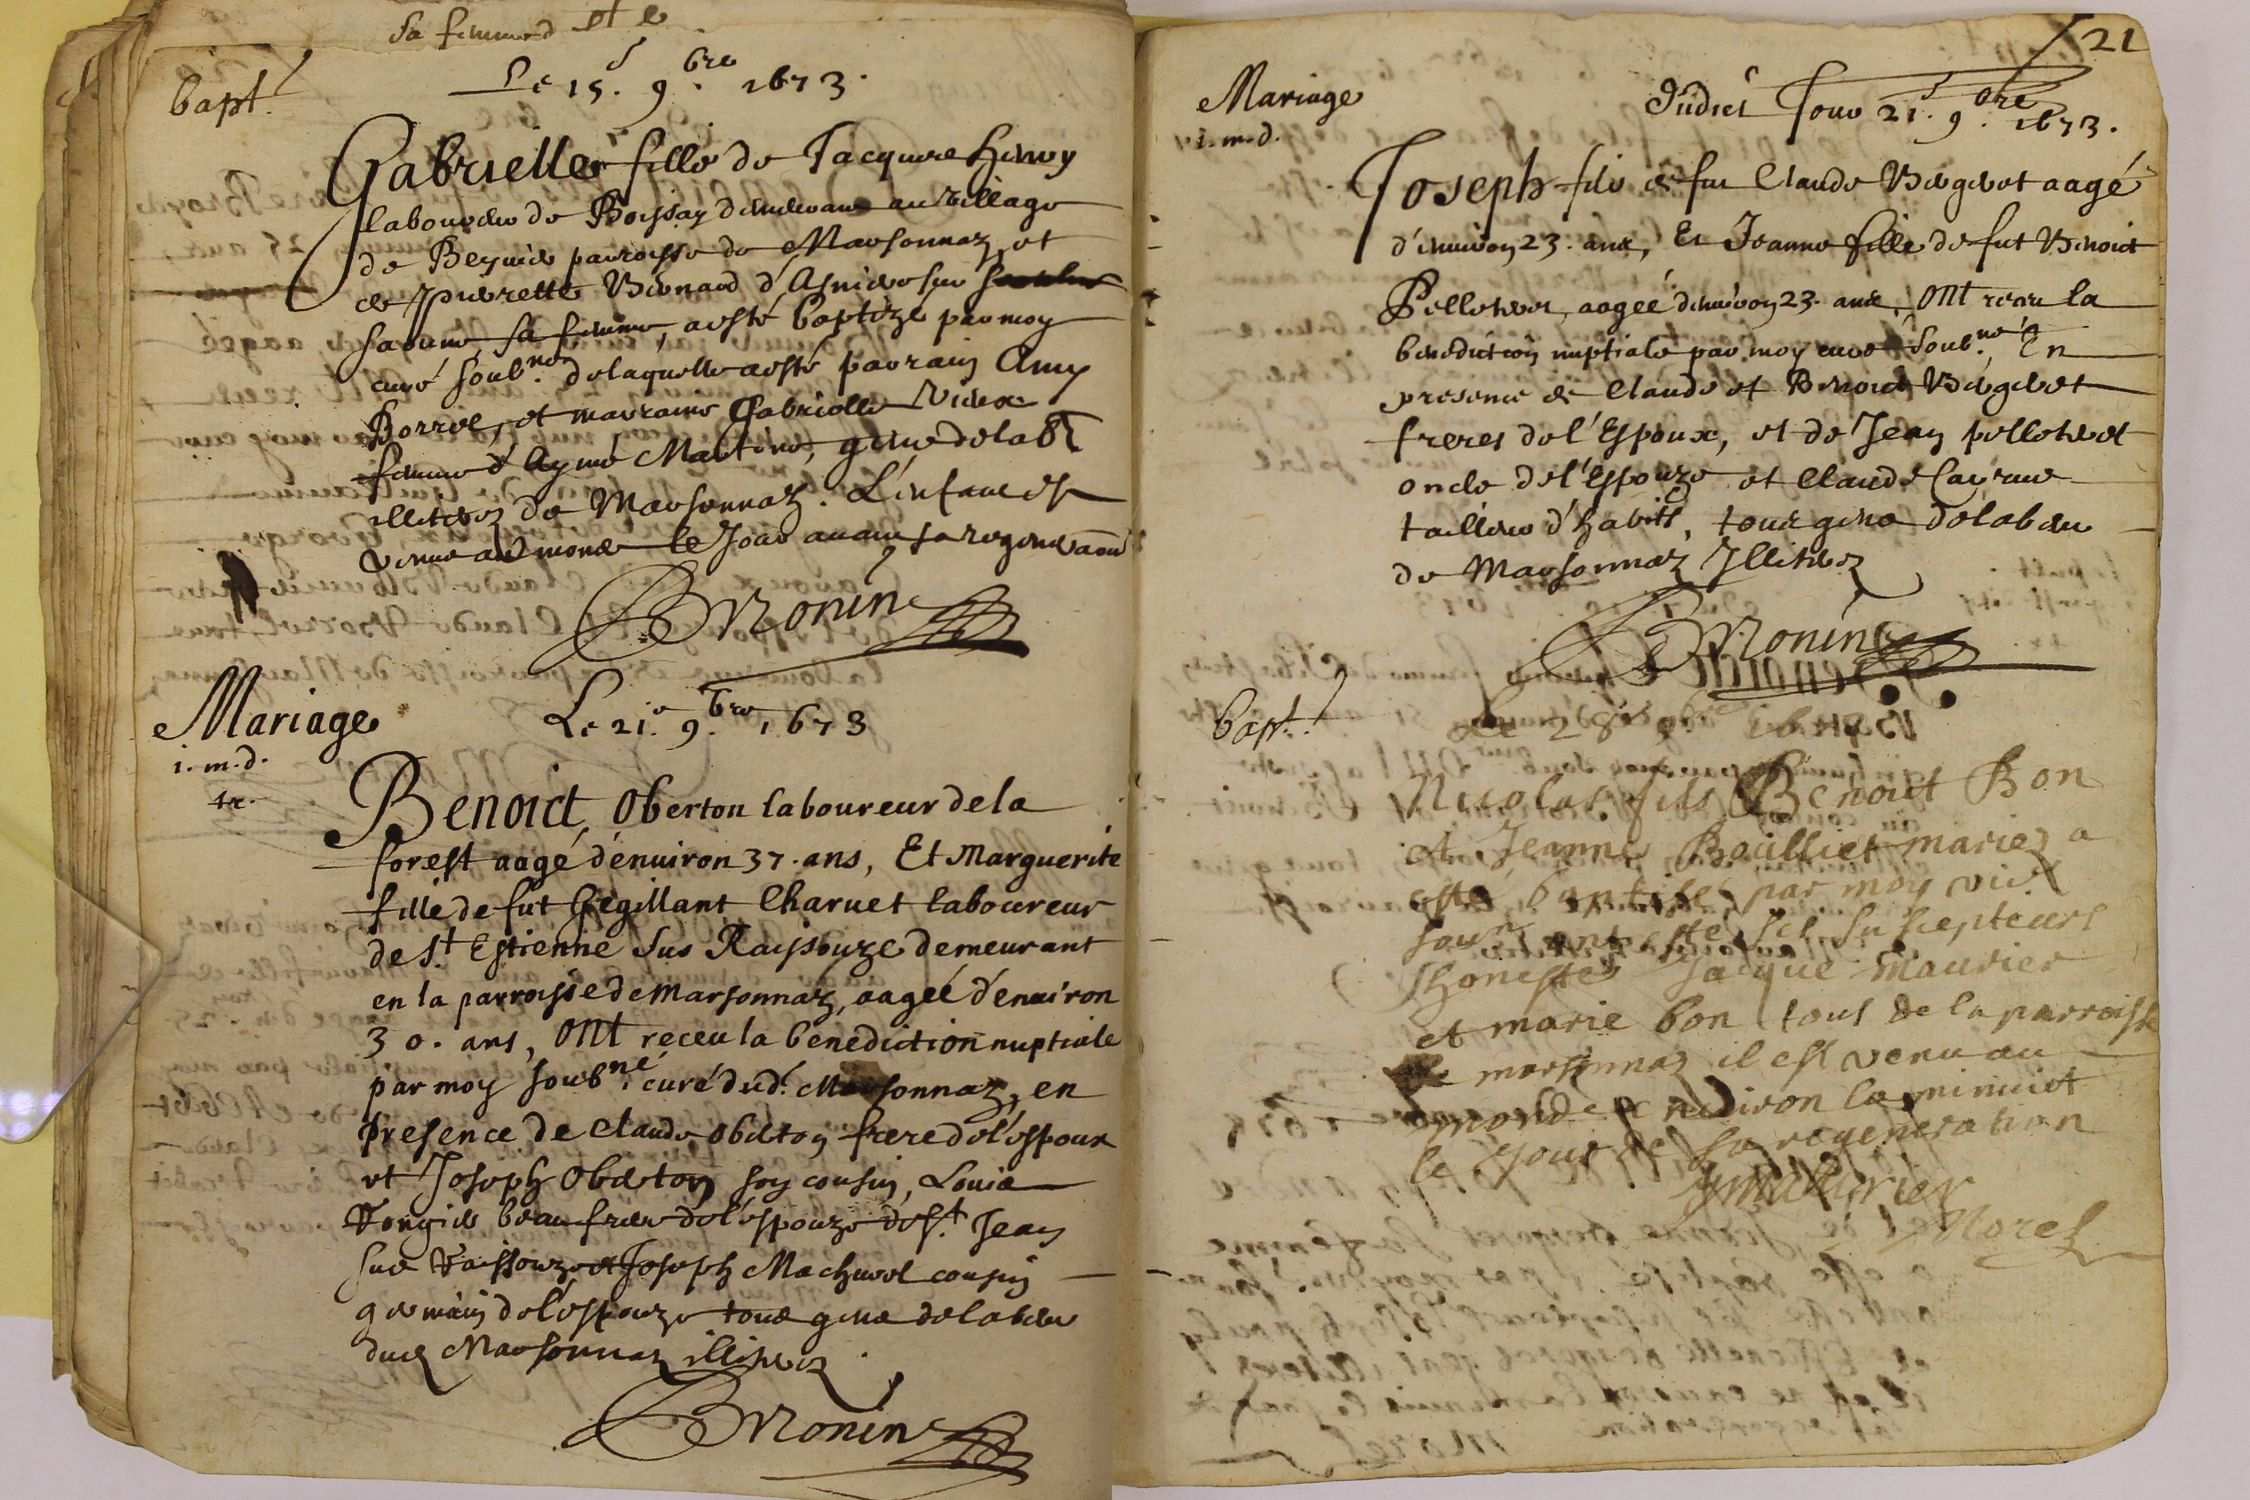 sa femme et e
bapt.
Le 15.e 9.bre 1673.
Gabrielle fille de Jacques Henry
laboureur de Boissay demeurant au village
de Beynier parroisse de Marsonnaz, et
de Pierrette Bernard d'Asniere sur
Saonne, sa femme, a esté baptizé par moy
curé soub.né delaquelle a esté parrain Amy
Borrel, et marraine Gabrielle
femme d'Aymé Martine, gens de lab.r
illiterez de Marsonnaz. L'enfant est
venue au monde le Jour avant sa regeneraõn
BMonin
Mariage
i.m.d.
Le 21.e 9.bre 1673
Benoict Oberton laboureur de la
forest aagé d'enuiron 37. ans, Et Marguerite
fille de fut Gegillant Charuet laboureur
de St Estienne sus Rayssouze demeurant
en la parroisse de Marsonnaz, aageé d'enuiron
30. ans, ONt receu la benediction nuptiale
par moy soub.né curé dud. Marsonnaz, en
presence de Claude Oberton frere de l'espoux
et Joseph Oberton son cousin, Louis
beau frere de l'espouze de St Jean
sus Raissouze et Joseph Machurel cousin
germain de l'espouze tous gens de labeur
dud Marsonnaz illiterez.
BMonin
21
Mariage
i.m.d.
Dudict Jour 21.e 9.bre 1673.
Joseph fils de fut Claude Bergeret aagé
d'enuiron 23. ans, Et Jeanne fille de fut Benoict
Pelleteret, aageé d'enuiron 23. ans, ONt receu la
benediction nuptiale par moy curé soub.né, En
presence de Claude et Benoict Bergeret
freres de l'Espoux, et de Jean pelleteret
oncle de l'Espouze et Claude
tailleur d'habits, tous gens de labeur
de Marsonnaz Illiterez
BMonin
bapt.
Le 28
Nicolas fils Benoict Bon
et Jeanne Bouilliet mariez a
esté baptisé par moy vic.
sou.né ont esté ses suscepteurs
honestes Jacque Maurier
et marie bon tous de la parroisse
de marsonnaz il est venu au
monde enuiron la minuict
le Jour de sa regeneration
JMaurier
Morel